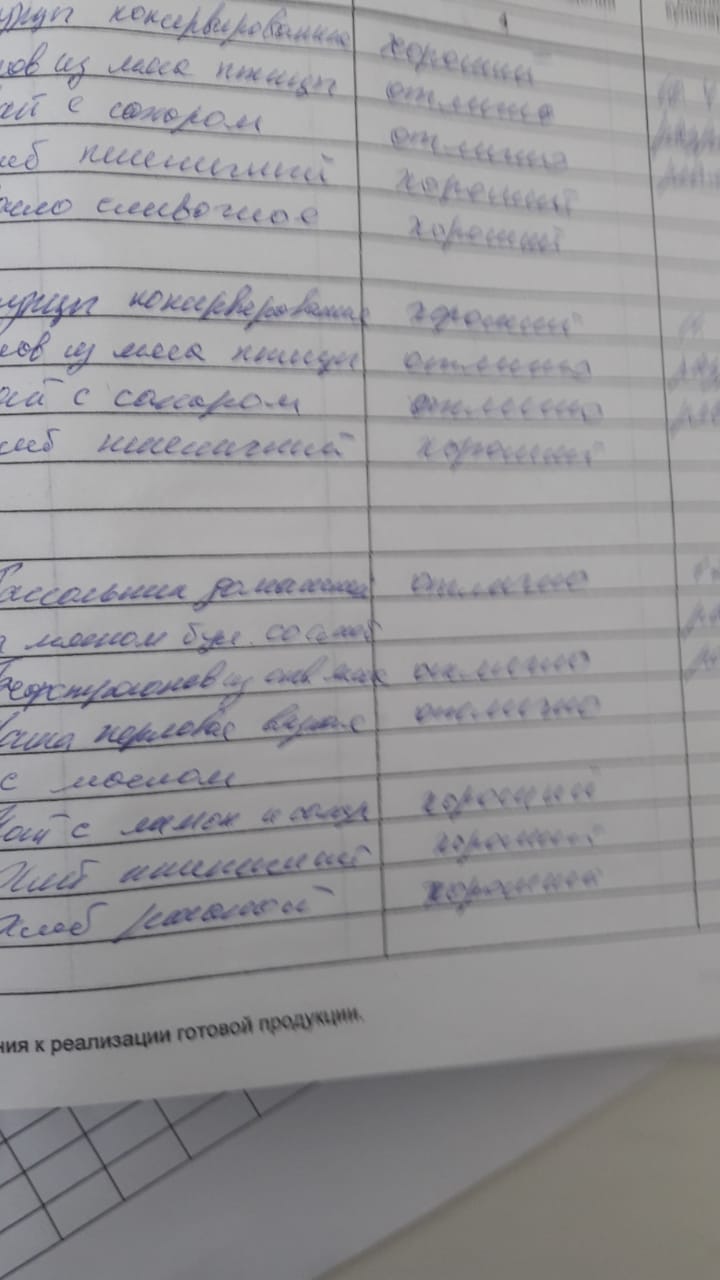 огурцы консервированные хорошый
плов из мяса птицы отлично
чай с сахаром отлично
хлеб пшеничный хороший
масло сливочное хороший
огурцы консервированные хороший
плов из мяса птицы отлично
чай с сахаром отлично
хлеб пшеничный хороший
Рассольник домашний отлично
на мясном бул. со смет
Бефстроганов из отв мяса отлично
Каша перловая вязкая отлично
с маслом
Чай с лимон и сахар хороший
Хлеб пшеничный хороший
Хлеб ржаной хороший
ния к реализации готовой продукции.